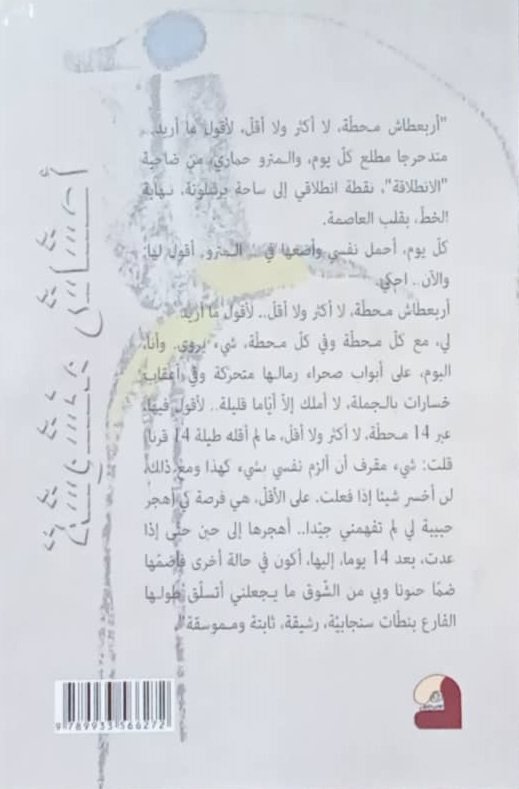 "أربعطاش محطّة، لا أكثر ولا أقلّ، لأقول ما أريد..
متدحرجا مطلع كلّ يوم، والمترو حماري، من ضاحية
"الانطلاقة"، نقطة انطلاقي إلى ساحة برشلونة، نهاية
الخطّ، بقلب العاصمة.
كلّ يوم، أحمل نفسي وأضعها في المترو، أقول لها:
والآن.. احكي.
أربعطاش محطّة، لا أكثر ولا أقلّ.. لأقول ما أريد.
لي، مع كلّ محطّة وفي كلّ محطّة، شيء يروى. وأنا،
اليوم، على أبواب صحراء رمالها متحركة وفي أعقاب
خسارات بالجملة، لا أملك إلاّ أيّاما قليلة.. لأقول فيها،
عبر 14 محطّة، لا أكثر ولا أقلّ، ما لم أقله طيلة 14 قرنا.
قلت: شيء مقرف أن ألزم نفسي بشيء كهذا ومع ذلك،
لن أخسر شيئا إذا فعلت. على الأقلّ، هي فرصة كي أهجر
حبيبة لي لم تفهمني جيّدا.. أهجرها إلى حين حتّى إذا
عدت، بعد 14 يوما، إليها، أكون في حالة أخرى فأضمّها
ضمّا حنونا وبي من الشّوق ما يجعلني أتسلّق طولها
الفارع بنطّات سنجابيّة، رشيقة، ثابتة ومموسقة".
9 789933 566272